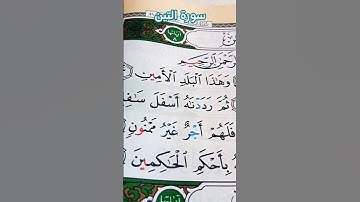 سورة التين
وَهَٰذَا الْبَلَدِ الْأَمِينِ
ثُمَّ رَدَدْنَاهُ أَسْفَلَ
فَلَهُمْ أَجْرٌ غَيْرُ مَمْنُونٍ
بِأَحْكَمِ الْحَاكِمِينَ